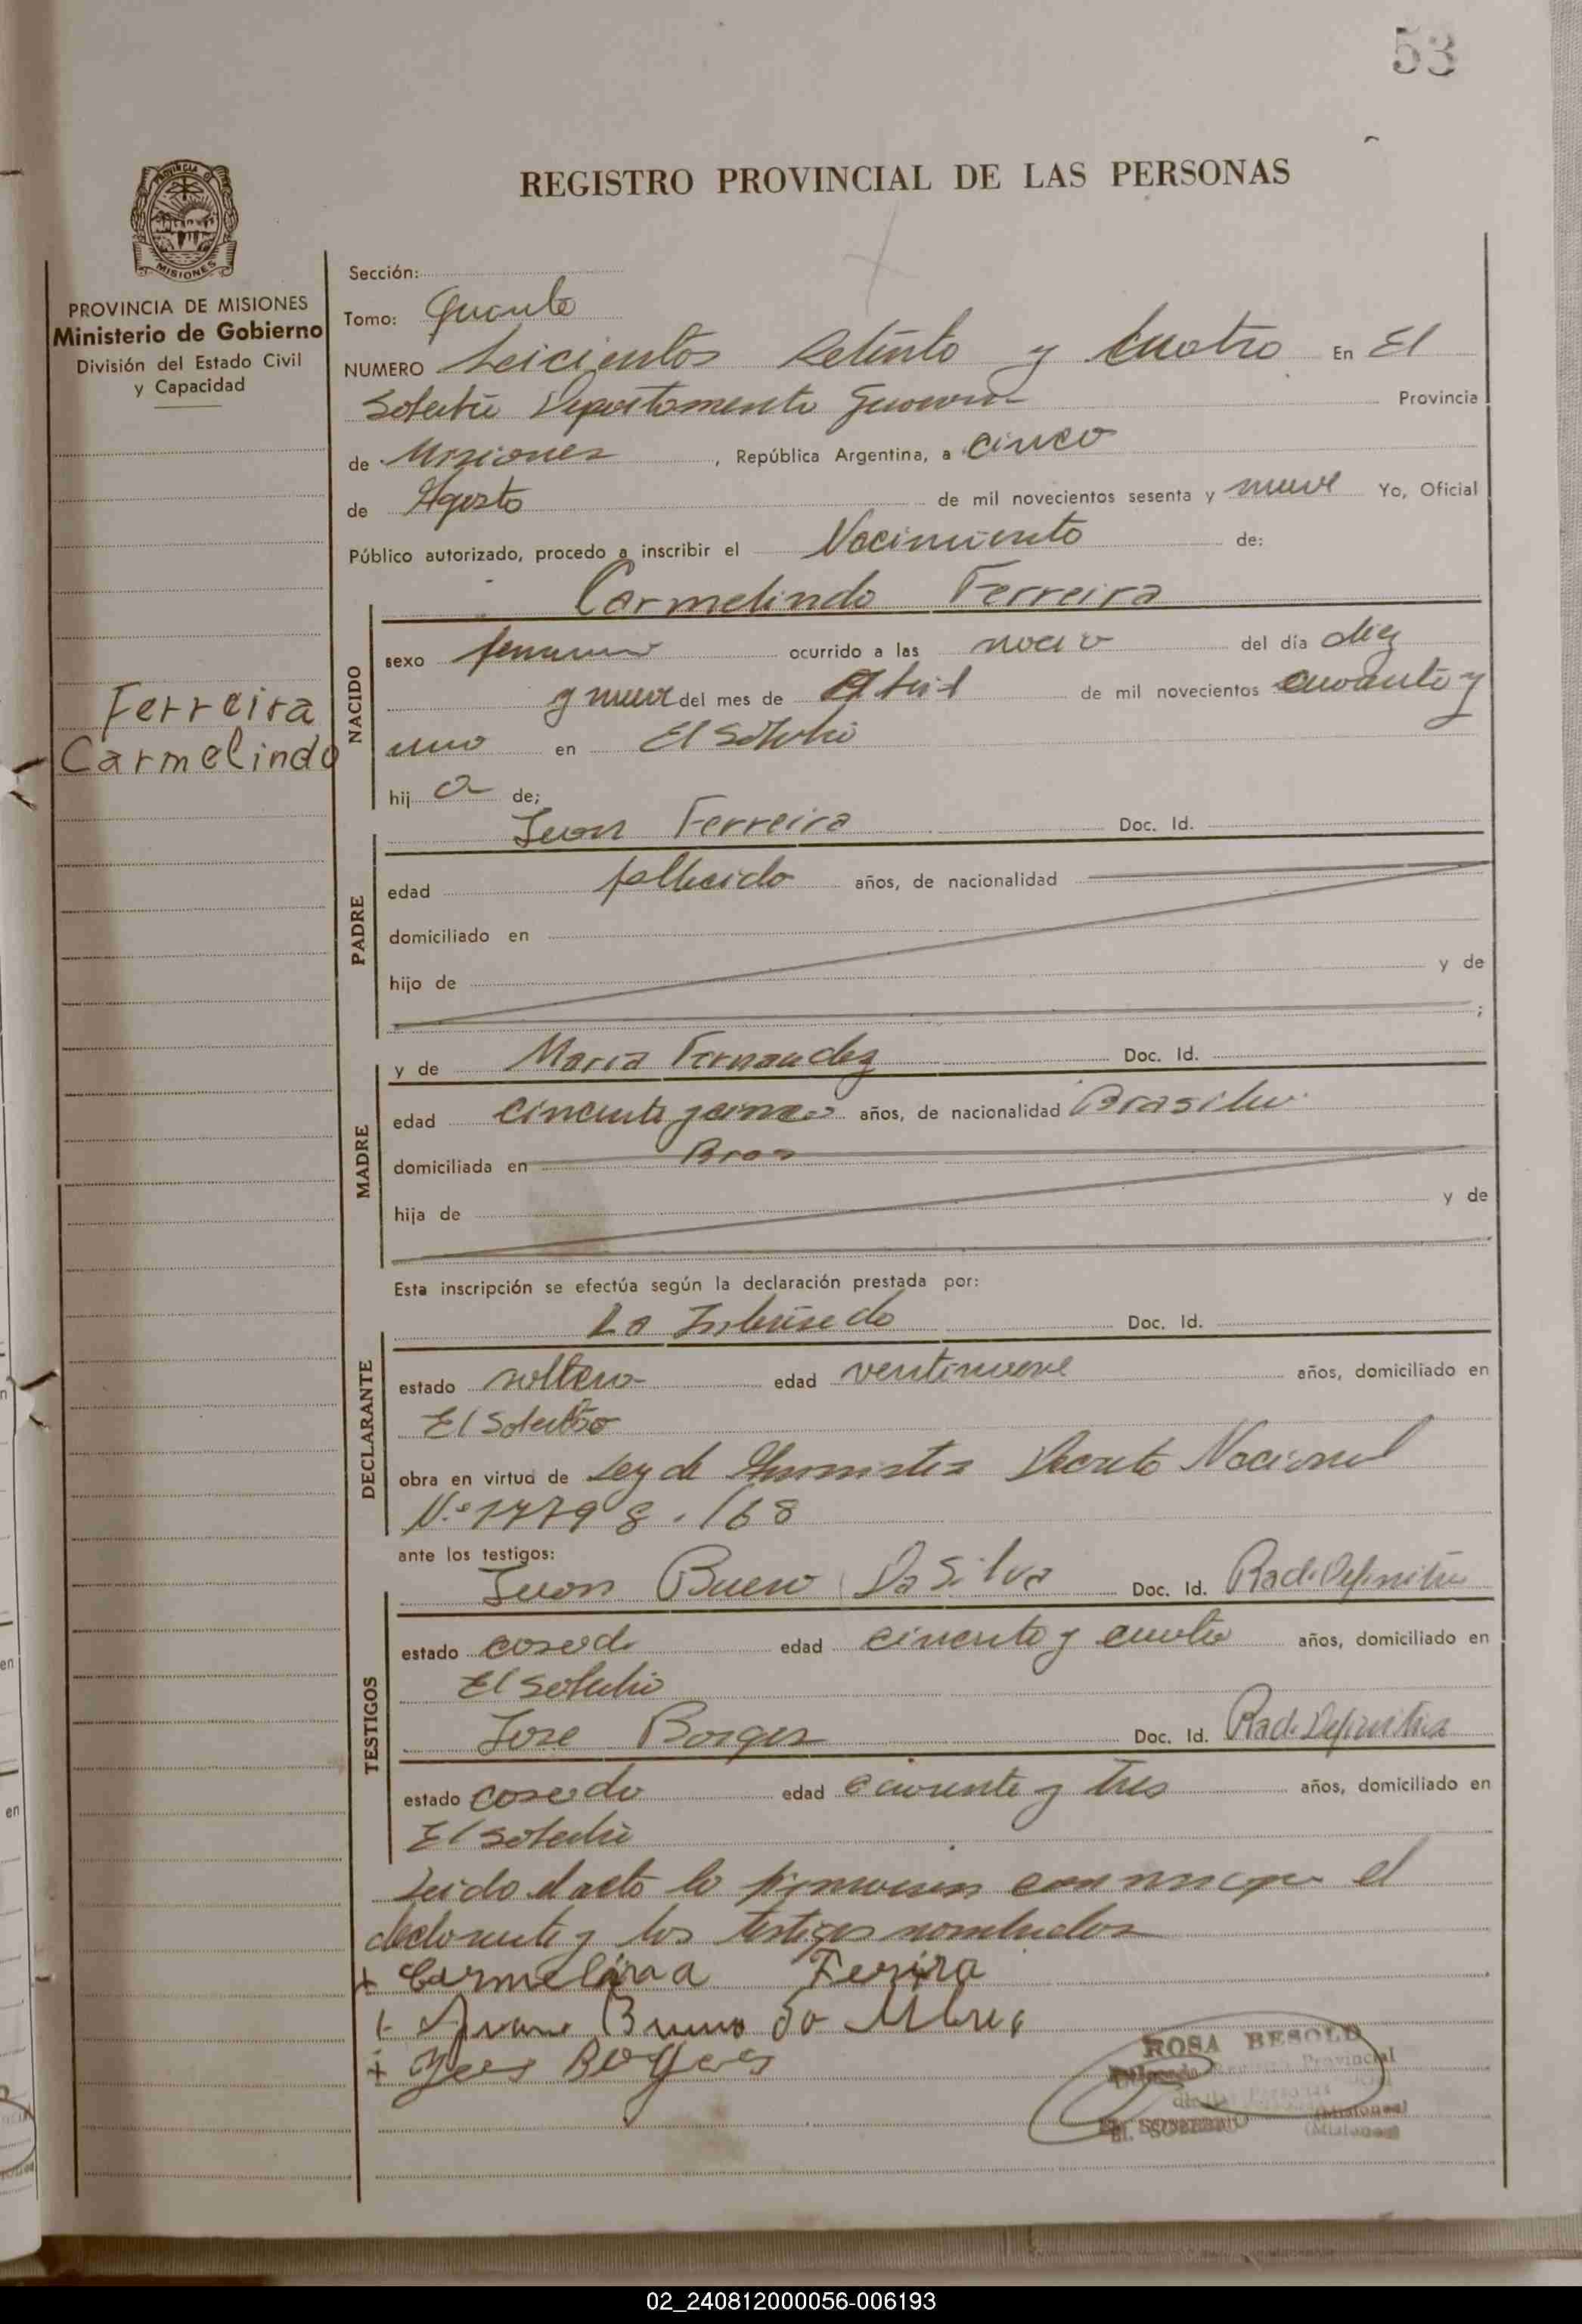 53
REGISTRO PROVINCIAL DE LAS PERSONAS
PROVINCIA DE MISIONES
Ministerio de Gobierno
División del Estado Civil
y Capacidad
Ferreira
Carmelindo
Sección:
Tomo:
NUMERO Seicientos Setenta y Cuatro En El
Soberbio Departamento Guarani Provincia
de Misiones, República Argentina, a cinco
de Agosto de mil novecientos sesenta y nueve Yo, Oficial
Público autorizado, procedo a inscribir el Nacimiento de:
NACIDO
Carmelindo Ferreira
sexo ocurrido a las del día diez
y nueve del mes de Abril de mil novecientos cuarenta y
uno en El Soberbio
hij a de;
PADRE
Juan Ferreira Doc. Id.
edad fallecido años, de nacionalidad
domiciliado en
hijo de y de
;
MADRE
y de Maria Fernandez Doc. Id.
edad cincuenta y cinco años, de nacionalidad
domiciliada en Bras
hija de y de
Esta inscripción se efectúa según la declaración prestada por:
DECLARANTE
La Interesada Doc. Id.
estado soltera edad ventinueve años, domiciliado en
El Soberbio
obra en virtud de Ley de Amnistia Decreto Nacional
N.º 17798./68
ante los testigos:
TESTIGOS
Juan Bueno Da Silva Doc. Id. Rad. Definitiva
estado casado edad cincuenta y cuatro años, domiciliado en
El Soberbio
Jose Borges Doc. Id. Rad. Definitiva
estado casado edad cuarenta y tres años, domiciliado en
El Soberbio
Leido el acto lo conmigo el
declarante y los testigos nombrados
+ Ferira
Bueno da
ROSA BESOLD
Provincial
EL SOBERBIO (Misiones)
(Misiones)
MISIONES
02_240812000056-006193